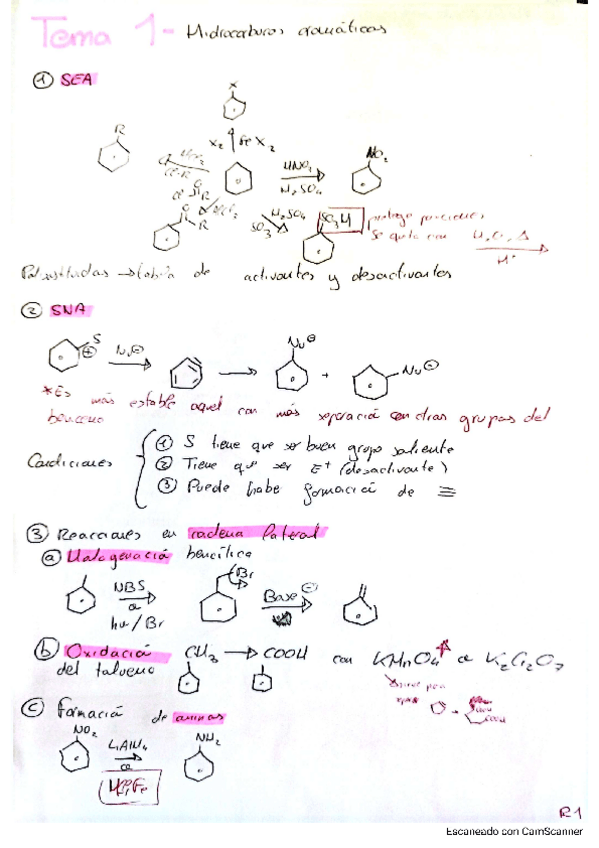 Tema 1 - Hidrocarburos aromáticos
① SEA
X
R
X₂ Fe X₂
NO₂
HNO₃
H₂SO₄
O
R
H₂SO₄
SO₃ Δ
SO₃H
protege posiciones
Se quita con H₂O, Δ
H⁺
Polisustituidas → tabla de activantes y desactivantes
② SNA
S
⊕
Nu⊖
Nu⊖
+
Nu⊖
*Es más estable aquel con más separación con otros grupos del
benceno
Condiciones
① S tiene que ser buen grupo saliente
② Tiene que ser E⁺ (desactivante)
③ Puede habe formació de ≡
③ Reacciones en cadena lateral
ⓐ Halogenació bencílica
NBS
o
hν/Br
Br
Base⊖
ⓑ Oxidació CH₃ → COOH con KMnO₄ o K₂Cr₂O₇
del tolueno
COOH
ⓒ Formació de aminas
NO₂
LiAlH₄
o
NH₂
R1
Escaneado con CamScanner